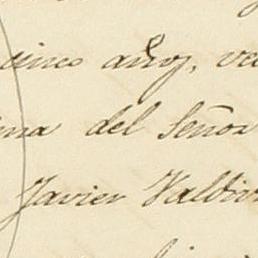 cinco años, ve
ma del Señor
Javier Valdiv